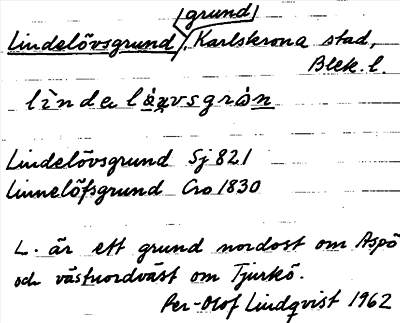 (grund)
Lindelövsgrund, Karlskrona stad,
Blek. l.
Lindelövsgrund Sj 821
Linnelöfsgrund Cro 1830
L. är ett grund nordost om Aspö
och västnordväst om Tjurkö.
Per-Olof Lindqvist 1962